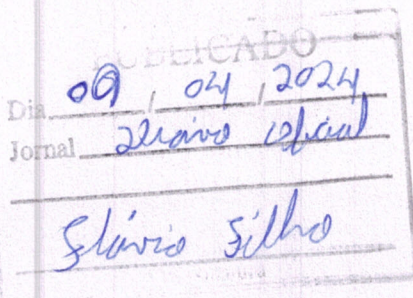 PUBLICADO
Dia 09, 04, 2024
Jornal Diário Oficial
Flávio Filho